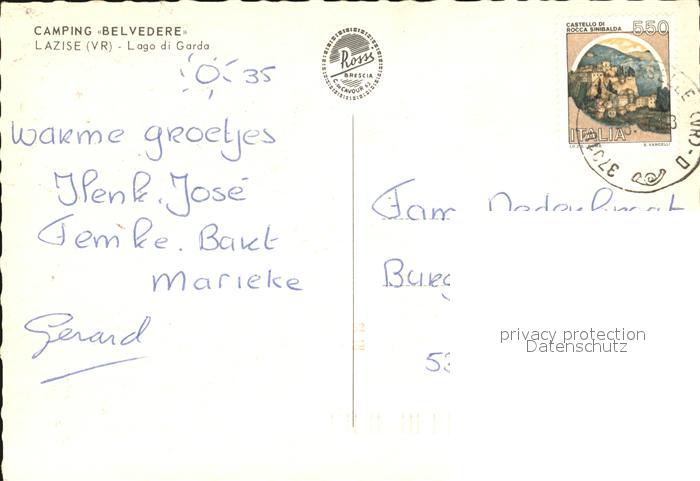 CAMPING «BELVEDERE»
LAZISE (VR) - Lago di Garda
35
warme groetjes
Henk. José
Femke. Bart
Marieke
Gerard
Rossi
BRESCIA
CASTELLO DI
ROCCA SINIBALDA
550
ITALIA
Fam
Burg
53
privacy protection
Datenschutz